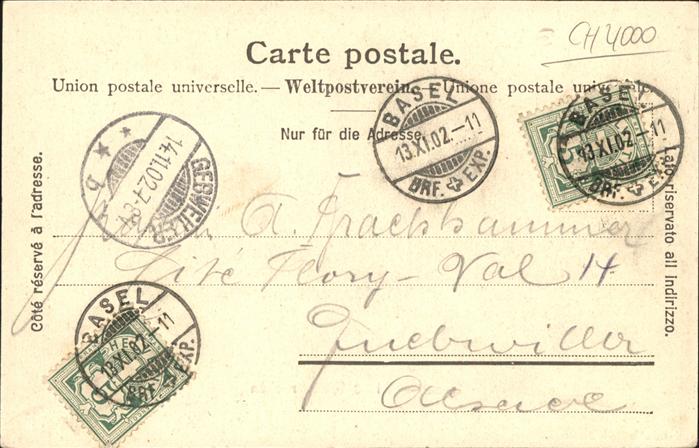 CH 4000
Carte postale.
Union postale universelle. — Weltpostverein. — Unione postale universale.
Nur für die Adresse.
Côté réservé à l'adresse.
Lato riservato all indirizzo.
BASEL
13.XI.02.–11
BRF. EXP.
BASEL
13.XI.02.–11
BRF. EXP.
GEBWEILER
14.11.02.7-8V.
b
A.
Cité Flory-Val 14
Guebwiller
Alsace
BASEL
13.XI.02.–11
BRF. EXP.
HE
5
5